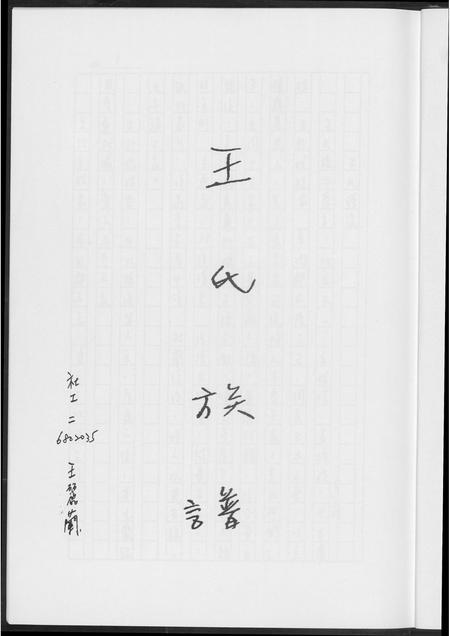 王氏族譜
社工二
6802035
王麗蘭